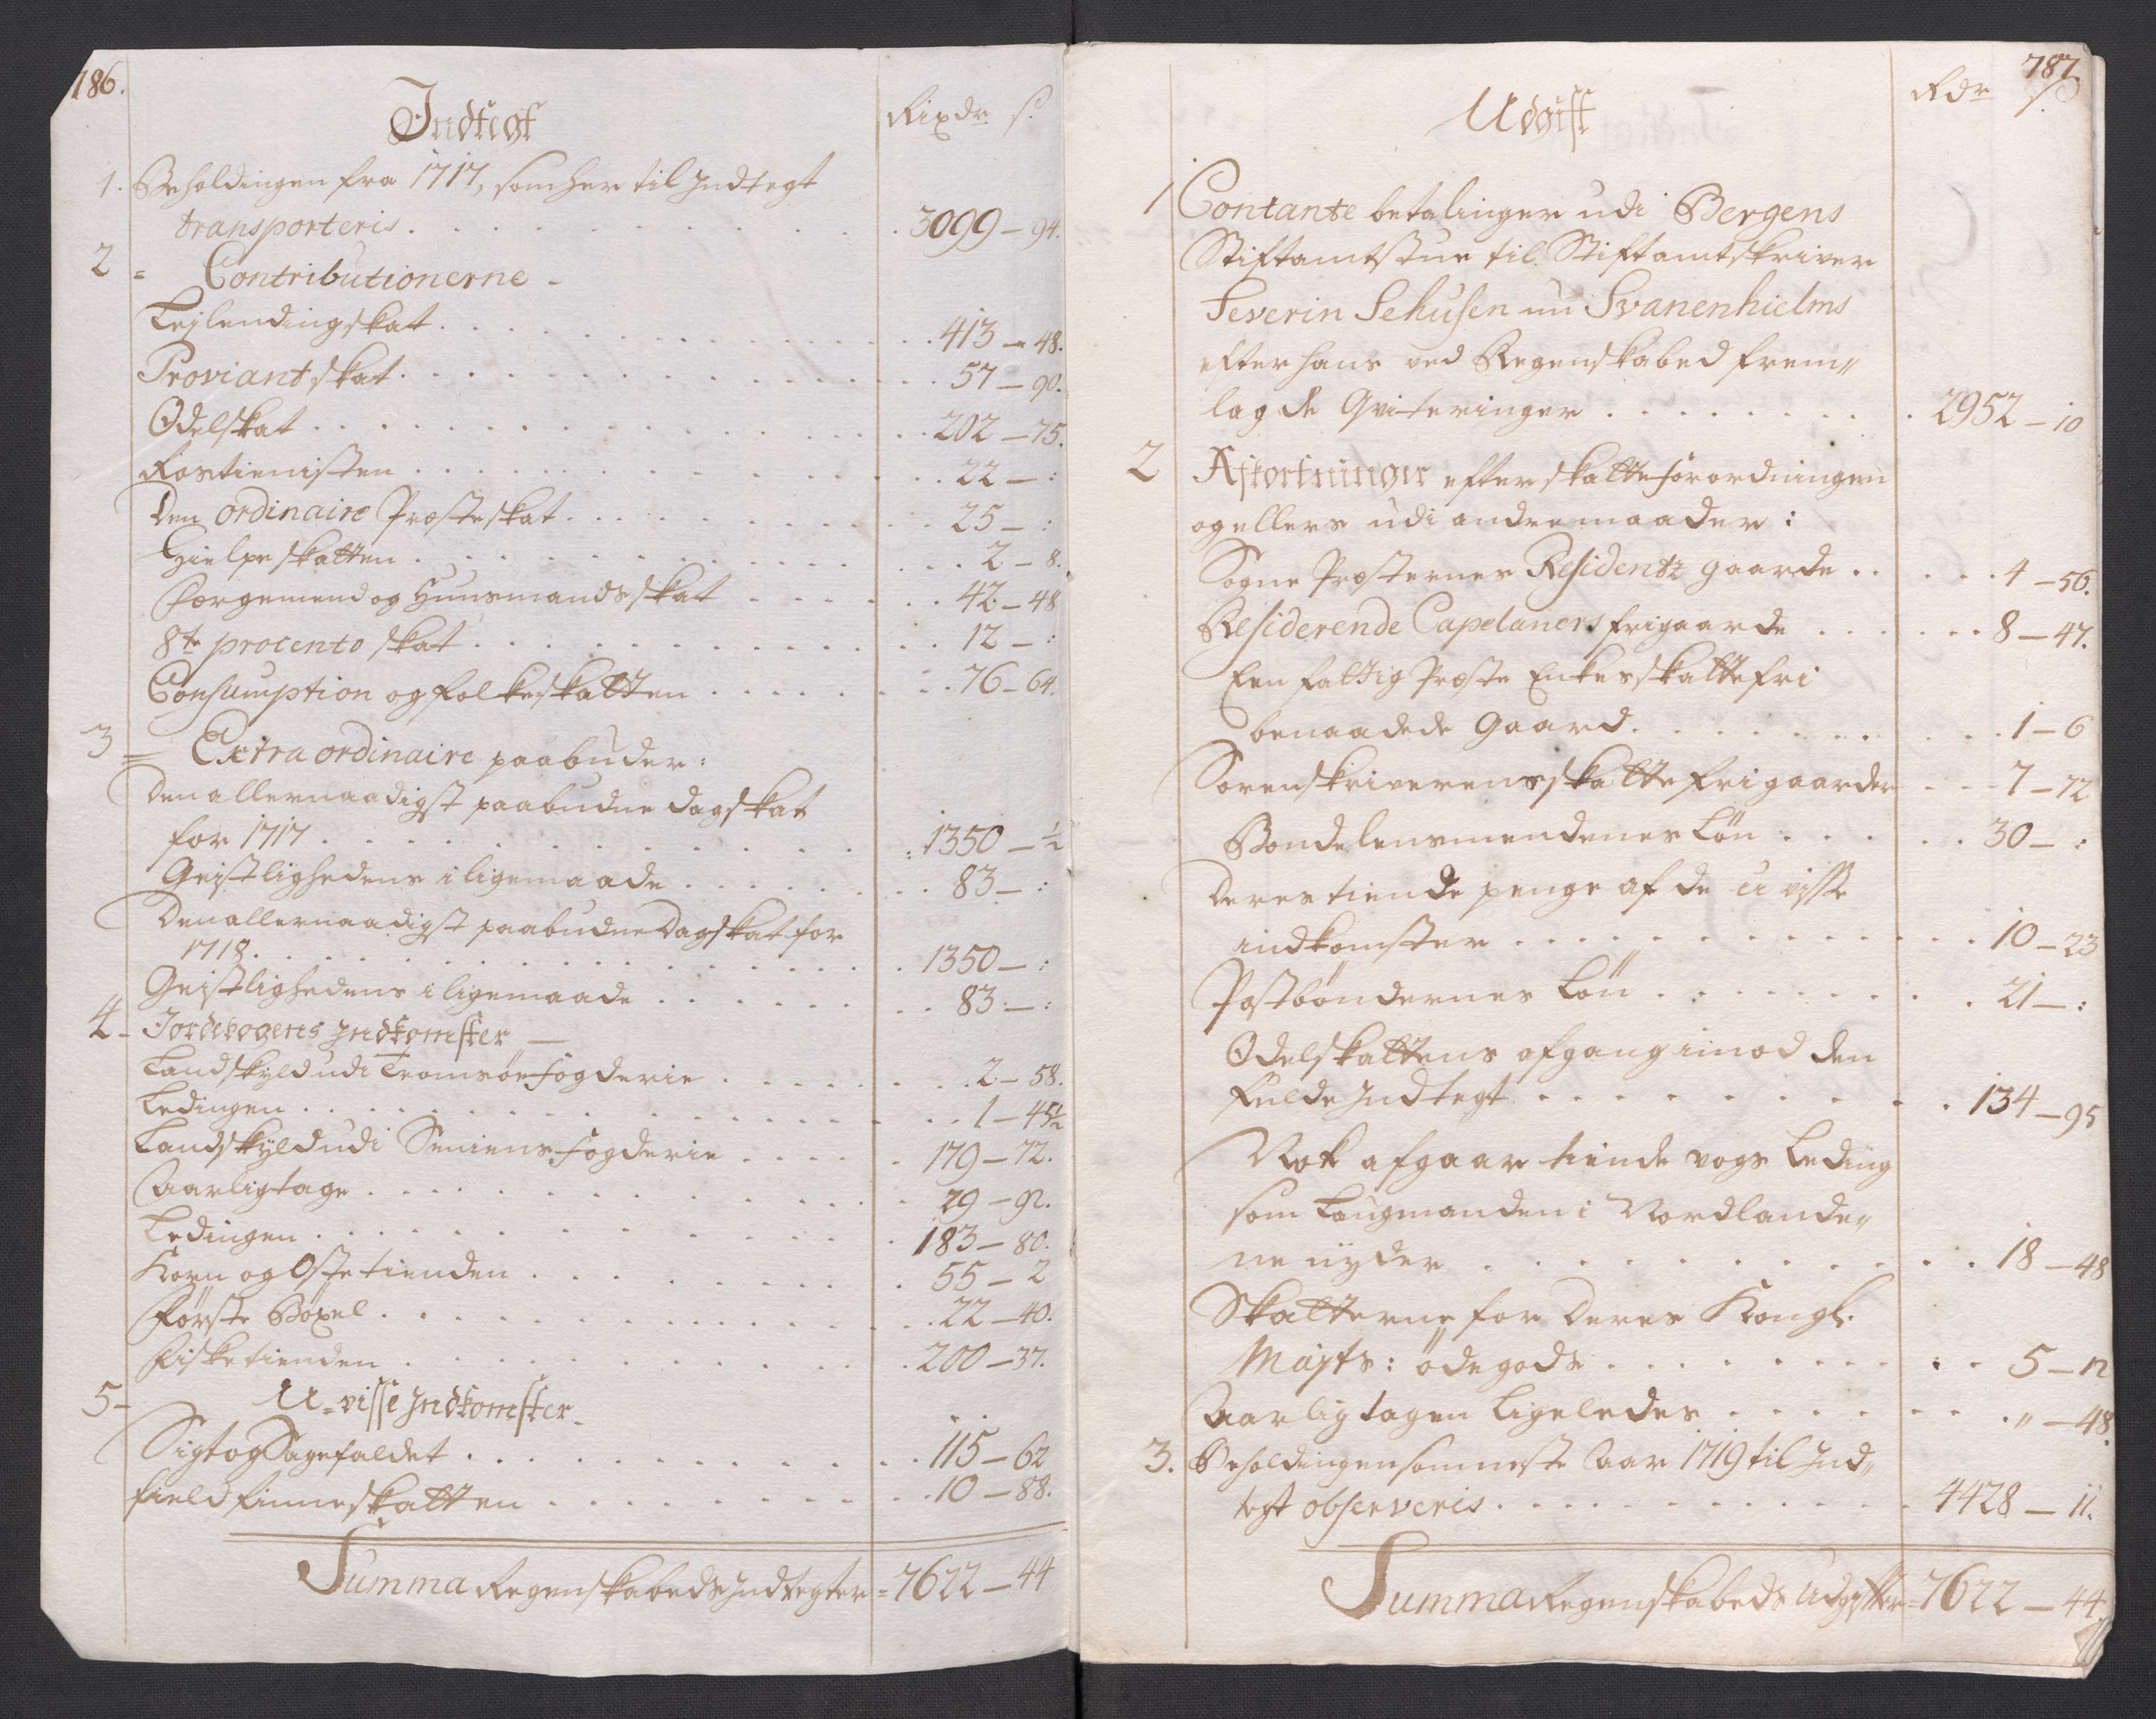 186.
Indtegt
Rixdr. s.
1. Beholdingen fra 1717, som her til Indtegt
transporteris . 3099 – 94.
2 = Contributionerne –
Leylendingskat . 413 – 48.
Proviantskat . 57 – 90.
Odelskat . 202 – 75.
Rostienisten . 22 – :
Den ordinaire Præsteskat . 25 – :
Hielpeskatten . 2 – 8.
Borgemend og Huusmands skat . 42 – 48
8te procento skat . 12 – :
Consumption og folkeskatten . 76 – 64.
3 = Extra ordinaire paabuder:
Den allernaadigst paabudne dagskat
for 1717 . 1350 – ½
Geistlighedens i ligemaade . 83 – :
Den allernaadigst paabudne Dagskat for
1718. . 1350 – :
Geistlighedens i ligemaade . 83 – :
4 – Jordebogens Indkomster –
Landskyld udi Tromsøe fogderie . 2 – 58.
Ledingen . 1 – 45½
Landskyld udi Seniens fogderie . 179 – 72.
Aarligtage . 29 – 92.
Ledingen . 183 – 80.
Korn og Oste tienden . 55 – 2
Første Böxel . 22 – 40.
Fisketienden . 200 – 37.
5 – U-visse Indkomster –
Sigt og Sagefaldet . 115 – 62
Field finneskatten . 10 – 88.
Summa Regenskabeds Indtegter = 7622 – 44
787.
Udgift
Rdr s.
1 Contante betalinger udi Bergens
Stiftamtstue til Stiftamtskriver
Severin Sehusen nu Svanenhielms
efter hans ved Regenskabed frem„
lagde Qviteringer . 2952 – 10
2 Afkortninger efter skatteforordningen
og ellers udi andre maader:
Sogne Præsternes Residentz gaarde . 4 – 56.
Residerende Capelaners frigaarde . 8 – 47.
Een fattig Præste Enkes skattefri
benaadede Gaard . 1 – 6
Sorenskriverens skatte frigaarder . 7 – 72
Bondelensmendenes Løn . 30 – :
Deres tiende penge af de u visse
indkomster . 10 – 23
Postbøndernes Løn . 21 – :
Odelskattens afgang imod den
fulde Indtegt . 134 – 95
Nok afgaar tiende vogs Leding
som Laugmanden i Nordlande„
ne nyder . 18 – 48
Skatterne for Deres Kongl.
Majts: ödegods . 5 – 12
Aarlig tagen Ligeledes . „ – 48.
3. Beholdingen som neste Aar 1719 til Ind„
tegt observeris . 4428 – 11.
Summa Regenskabeds Udgifter = 7622 – 44.